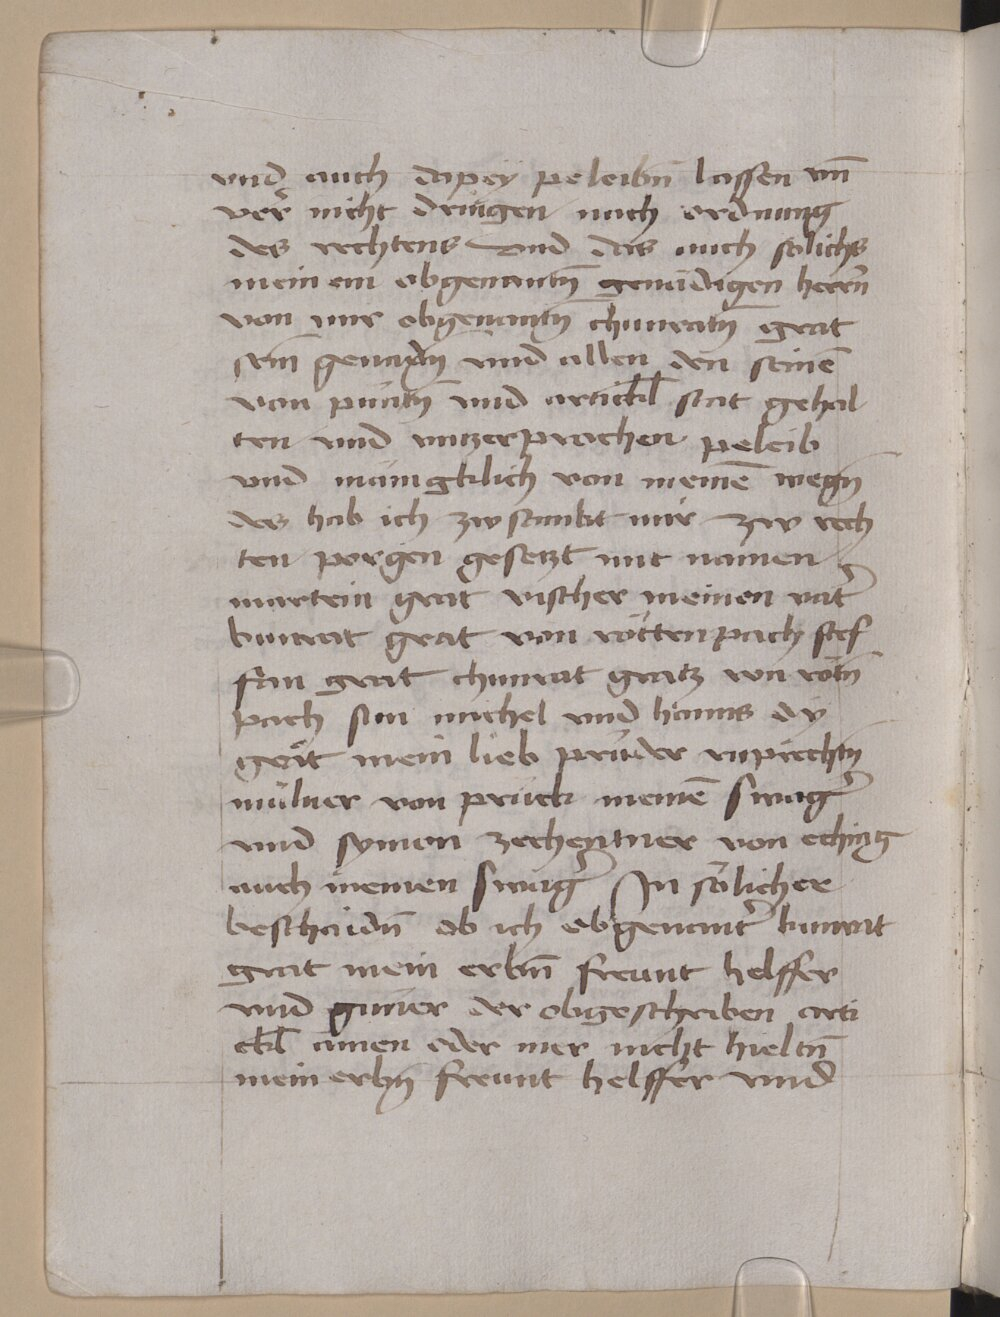 vnd auch dapeÿ peleibn̄ lassen vn̄
ver̄ nicht dringen nach ordnung
des rechtens vnd das auch sölichs
mein em obgenantn̄ genädigen herrn̄
von mir obgenantn̄ chunratn̄ grat
sein genadn̄ vnd allen den seinē
von púnttn̄ vnd artickl stat gehal
ten vnd vnzerprochen peleib
vnd mänigklich von meinē wegn̄
des hab ich zw sambt mir zw rech
ten porgen gesetzt mit namen
martein grat vischer meinen vat̄
kunrat grat von röttenpach stef
fan grat chunrat gratz von rötn̄
pach sun michel vnd hanns dy
grät mein lieb prüder ruprechtn̄
mülner von prúck meinē swaḡ
vnd symon zechentner von eching
auch meinen swaḡ In sölicher
beschaidn̄ ob ich obgenant̄ kunrat
grat mein erbn̄ freunt helffer
vnd günner der obgeschriben arti
ckl ainen oder mer nicht hieltn̄
mein erbn̄ freunt helffer vnd